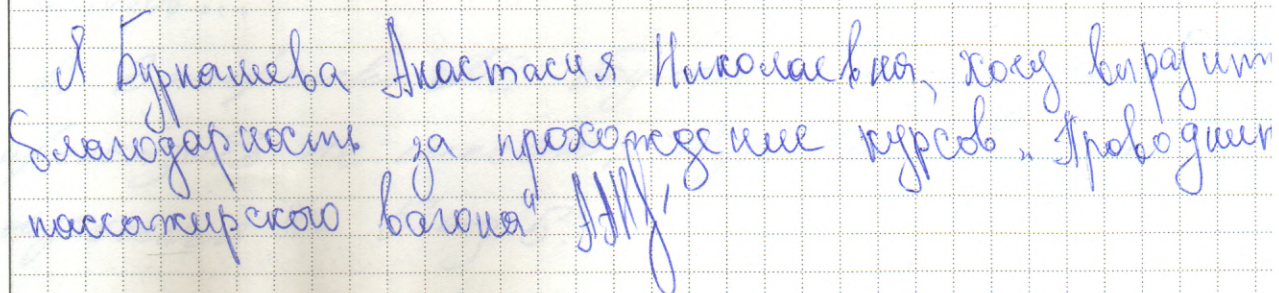 Я Бурнашева Анастасия Николаевна, хочу выразить
благодарность за прохождение курсов „Проводник
пассажирского вагона"